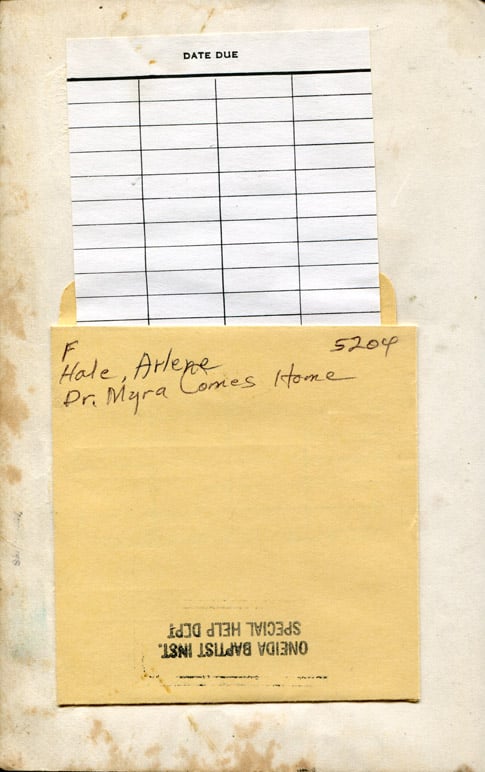 DATE DUE
F 5204
Hale, Arlene
Dr. Myra Comes Home
ONEIDA BAPTIST INST.
SPECIAL HELP DEPT